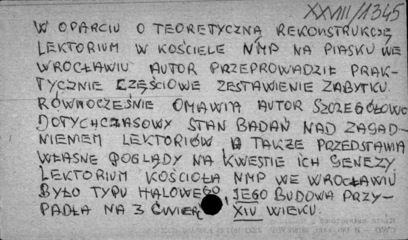 XXVIII/1345
W OPARCIU O TEORETYCZNĄ REKONSTRUKCJĘ
LEKTORIUM W KOŚCIELE NMP NA PIASKU WE
WROCŁAWIU AUTOR PRZEPROWADZIŁ PRAK-
TYCZNIE CZĘŚCIOWE ZESTAWIENIE ZABYTKU.
RÓWNOCZEŚNIE OMAWIA AUTOR SZCZEGÓŁOWO
DOTYCHCZASOWY STAN BADAŃ NAD ZAGAD-
NIENIEM LEKTORIÓW A TAKŻE PRZEDSTAWIA
WŁASNE POGLĄDY NA KWESTIE ICH GENEZY.
LEKTORIUM KOŚCIOŁA NMP WE WROCŁAWIU
BYŁO TYPU HALOWEGO, JEGO BUDOWA PRZY-
PADŁA NA 3 ĆWIERĆ XIV WIEKU.